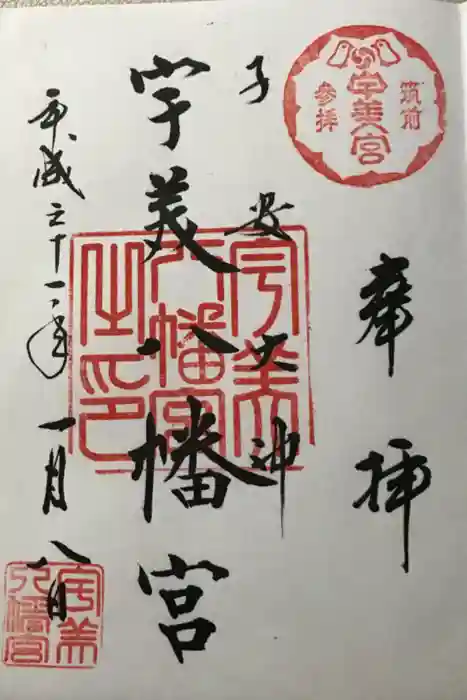 奉拝
筑前
宇美宮
参拝
子安大神
宇美八幡宮
宇美
八幡宮
之印
平成三十一年
一月八日
宇美
八幡宮